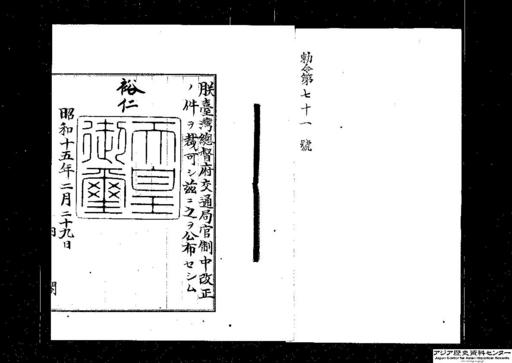 勅令第七十一號
朕臺灣總督府交通局官制中改正
ノ件ヲ裁可シ茲ニ之ヲ公布セシム
裕仁
天皇
御璽
昭和十五年二月二十九日
内閣
アジア歴史資料センター
Japan Center for Asian Historical Records